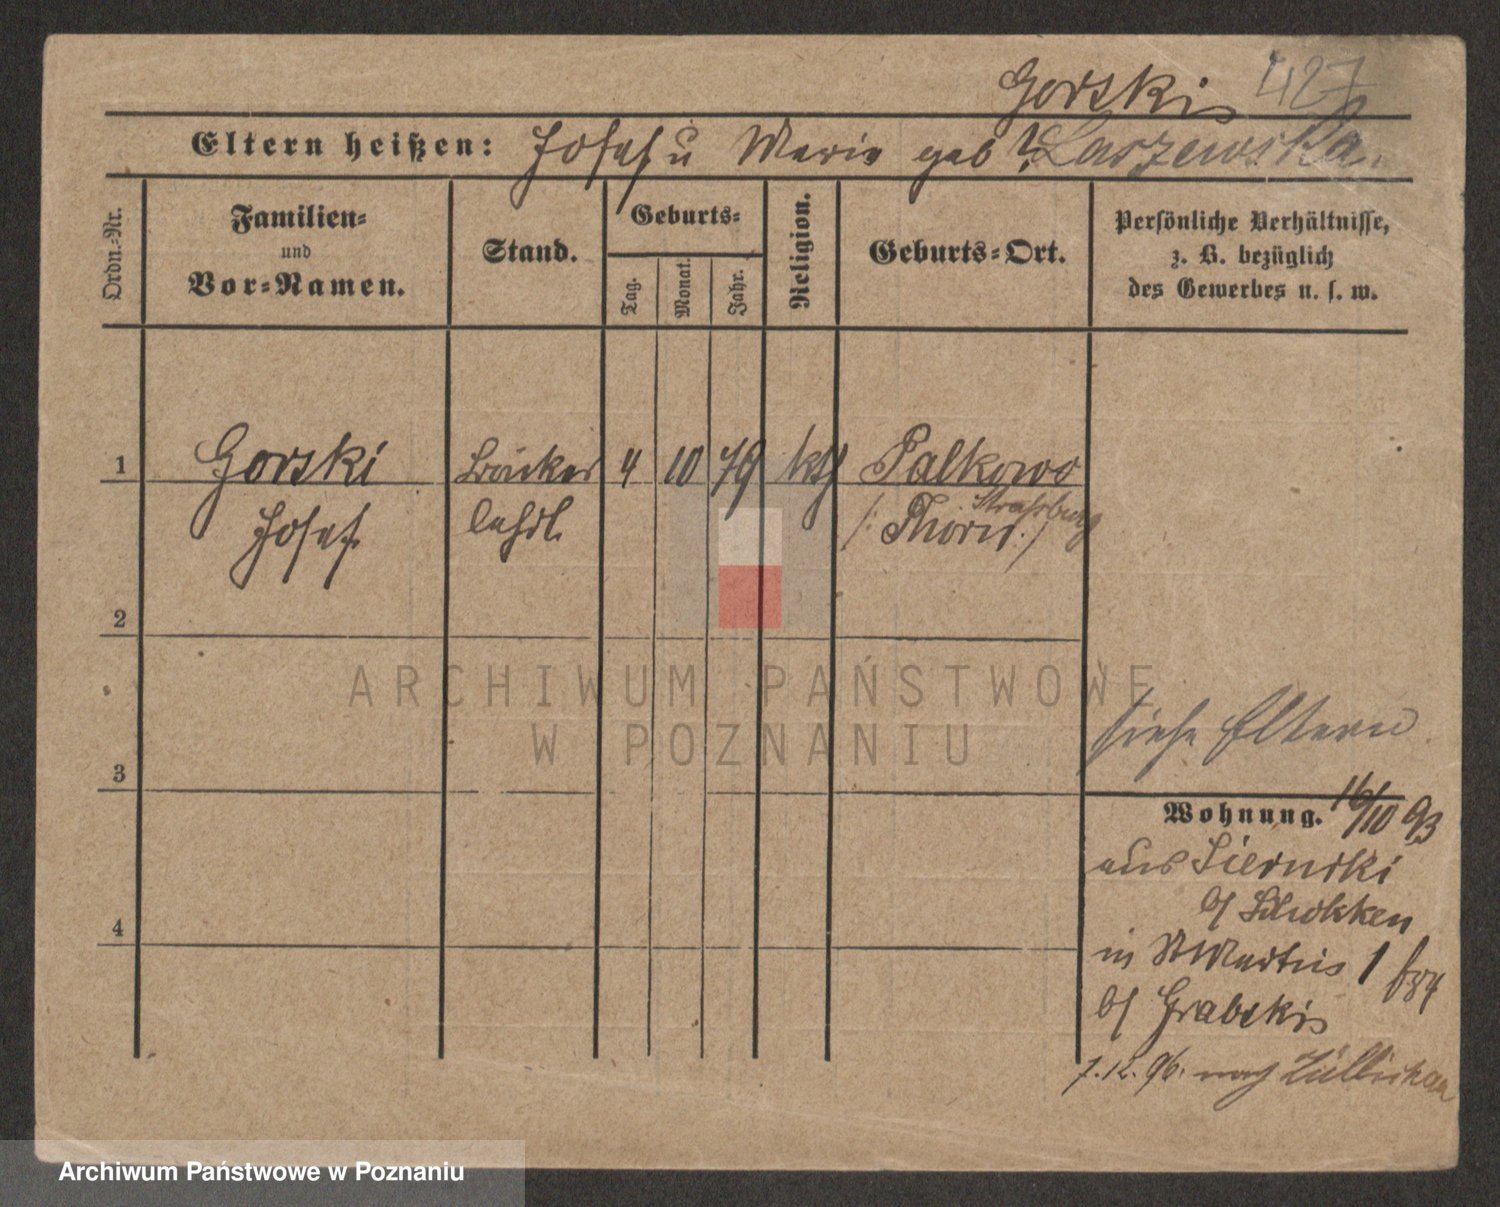 Gorski 427
Eltern heißen: Josef u Marie geb ? Laszewska.
Ordn.-Nr.
Familien-
und
Vor-Namen.
Stand.
Geburts-
Tag.
Monat.
Jahr.
Religion.
Geburts-Ort.
Persönliche Verhältnisse,
z. B. bezüglich
des Gewerbes u. s. w.
1 Gorski Bäcker 4 10 79 kth Palkowo
Strasburg
Josef Lehrl. /: Thorn :/
2
3
4
siehe Eltern
Wohnung. 16/10 93
aus
b/
in St Martin 1
b/ Grabski
7.12.96. nach Züllichau
ARCHIWUM PAŃSTWOWE
W POZNANIU
Archiwum Państwowe w Poznaniu